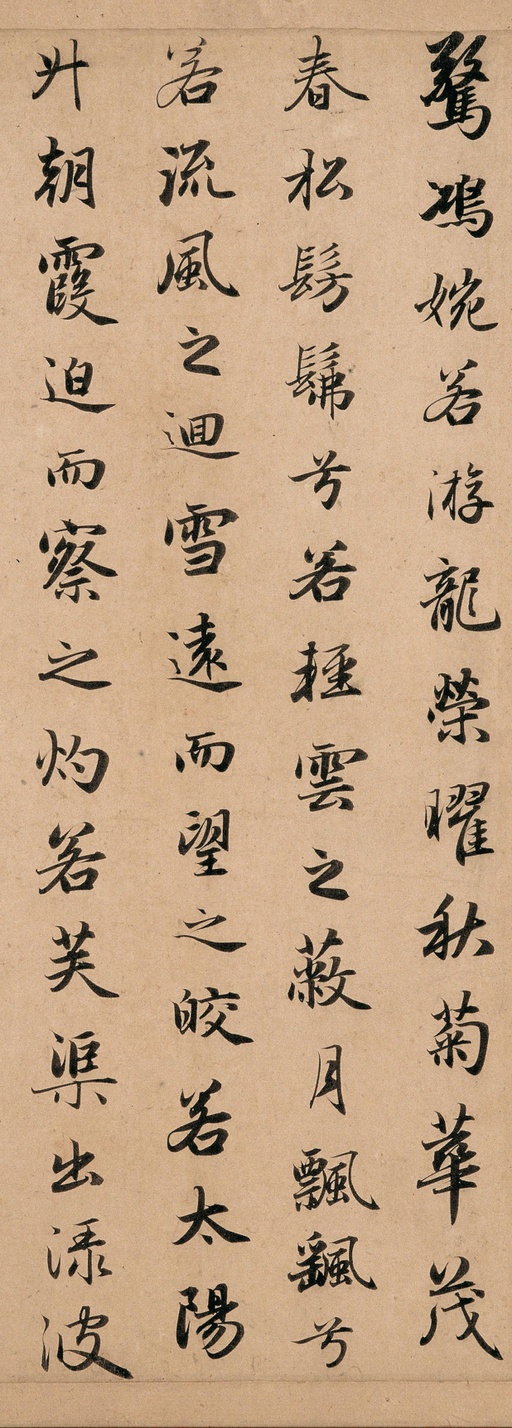 驚鴻婉若游龍榮曜秋菊華茂
春松髣髴兮若輕雲之蔽月飄颻兮
若流風之迴雪遠而望之皎若太陽
升朝霞迫而察之灼若芙渠出淥波